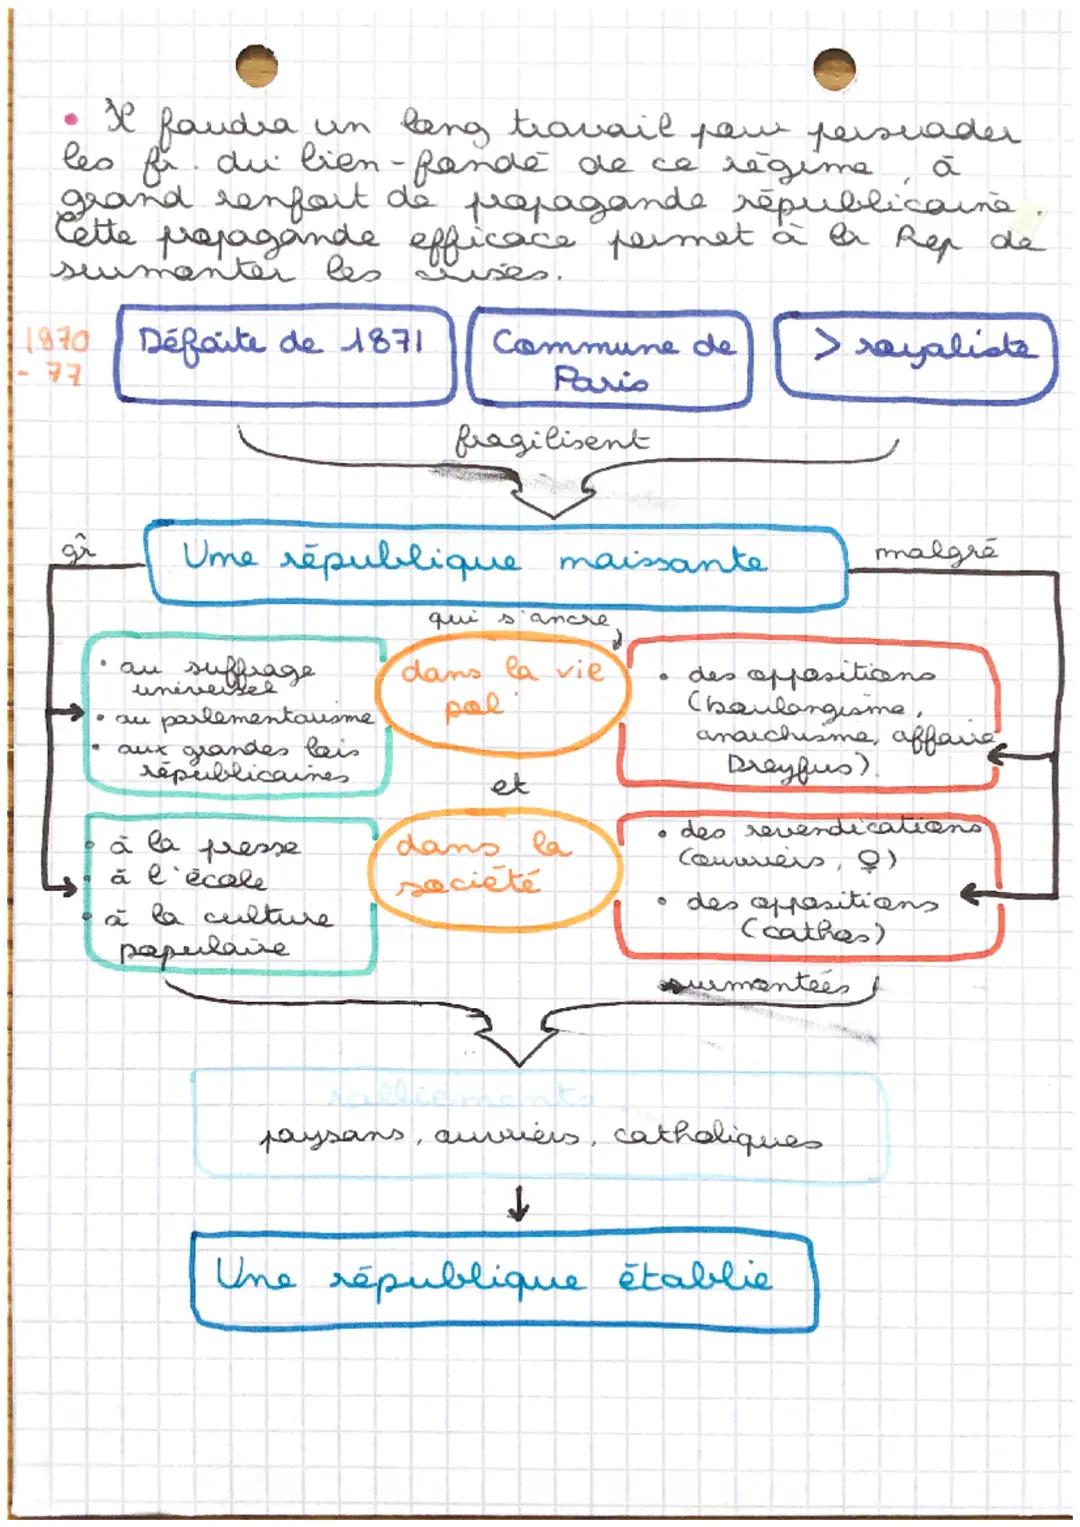 • Il faudra un long travail pour persuader
les fr. du bien-fondé de ce régime, à
grand renfort de propagande républicaine.
Cette propagande efficace permet à la Rep de
surmonter les crises.
1870
- 77
Défaite de 1871
Commune de
Paris
> royaliste
fragilisent
gr
Une république naissante
malgré
qui s'ancre
• au suffrage
universel
• au parlementarisme
• aux grandes lois
républicaines
dans la vie
pol
• des oppositions
(boulangisme,
anarchisme, affaire
Dreyfus)
et
• à la presse
• à l'école
• à la culture
populaire
dans la
société
• des revendications
(ouvriers, ♀)
• des oppositions
(cathos)
surmontées
ralliements
paysans, ouvriers, catholiques
Une république établie